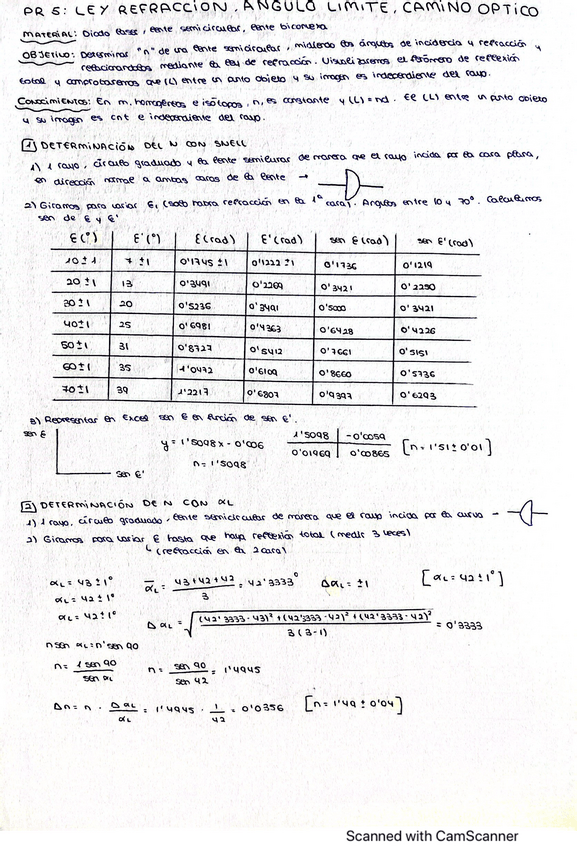 PR 5: LEY REFRACCION, ANGULO LIMITE, CAMINO OPTICO
MATERIAL: Diodo laser, lente semicircular, lente biconvexa
OBJETIVO: Determinar "n" de una lente semicircular, midiendo los ángulos de incidencia y refracción y
relacionandolos mediante la ley de refracción. Visualizaremos el fenómeno de reflexión
total y comprobaremos que (L) entre un punto objeto y su imagen es independiente del rayo.
Conocimientos: En m, homogéneos e isótopos, n, es constante y (L) = nd. El (L) entre un punto objeto
y su imagen es cnt e independiente del rayo.
1 DETERMINACIÓN DEL N CON SNELL
1) 1 rayo, círculo graduado y la lente de manera que el rayo incida por la cara plana,
en dirección normal a ambas caras de la lente →
2) Giramos para variar ε, (solo habra refracción en la 1ª cara). Angulos entre 10 y 70°. Calculamos
sen de ε y ε'
ε(°) ε'(°) ε(rad) ε'(rad) sen ε(rad) sen ε'(rad)
10 ± 1 7 ± 1 0'1745 ± 1 0'1222 ± 1 0'1736 0'1219
20 ± 1 13 0'3491 0'2269 0'3421 0'2250
30 ± 1 20 0'5236 0'3491 0'5000 0'3421
40 ± 1 25 0'6981 0'4363 0'6428 0'4226
50 ± 1 31 0'8727 0'5412 0'7661 0'5151
60 ± 1 35 1'0472 0'6109 0'8660 0'5736
70 ± 1 39 1'2217 0'6807 0'9397 0'6293
3) Representar en Excel sen ε en función de sen ε'.
sen ε
y = 1'5098x - 0'006
1'5098 -0'0059
0'01969 0'00865
[n = 1'51 ± 0'01]
n = 1'5098
sen ε'
2 DETERMINACIÓN DE N CON αL
1) 1 rayo, círculo graduado, lente semicircular de manera que el rayo incida por la curva →
2) Giramos para variar ε hasta que haya reflexión total (medir 3 veces)
↳ (refracción en la 2 cara)
αL = 43 ± 1°
αL = 42 ± 1°
αL = 42 ± 1°
α̅L = (43+42+42)/3 = 42'3333° ΔαL = ±1 [αL = 42 ± 1°]
ΔαL = √(((42'3333 - 43)² + (42'3333 - 42)² + (42'3333 - 42)²)/(3(3-1))) = 0'3333
n sen αL = n' sen 90
n = 1 sen 90/sen αL n = sen 90/sen 42 = 1'4945
Δn = n · ΔαL/αL = 1'4945 · 1/42 = 0'0356 [n = 1'49 ± 0'04]
Scanned with CamScanner